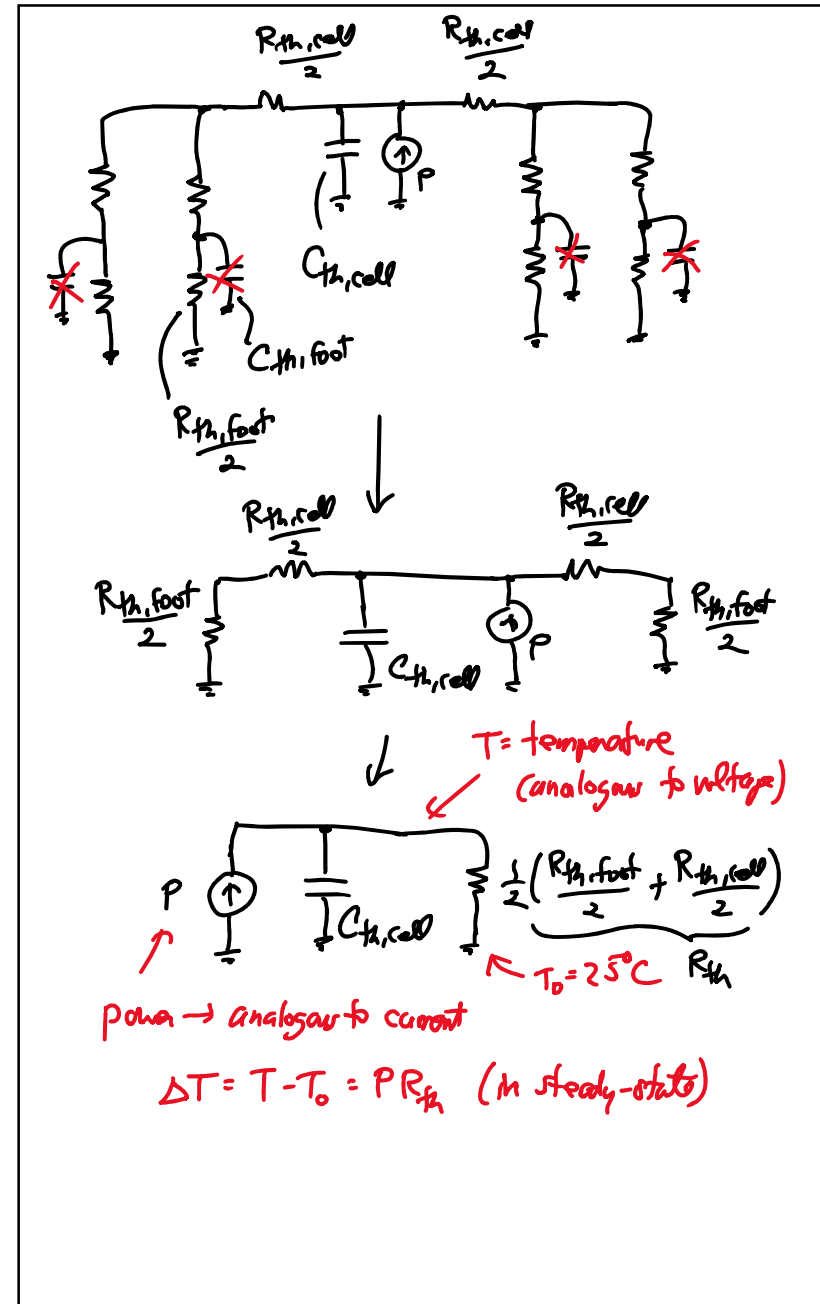 R_th,cell/2 R_th,cell/2
P
C_th,cell
C_th,foot
R_th,foot/2
R_th,cell/2 R_th,cell/2
R_th,foot/2 R_th,foot/2
P
C_th,cell
T = temperature
(analogous to voltage)
P C_th,cell 1/2 (R_th,foot/2 + R_th,cell/2)
T_0 = 25°C R_th
power → analogous to current
ΔT = T - T_0 = P R_th (in steady-state)